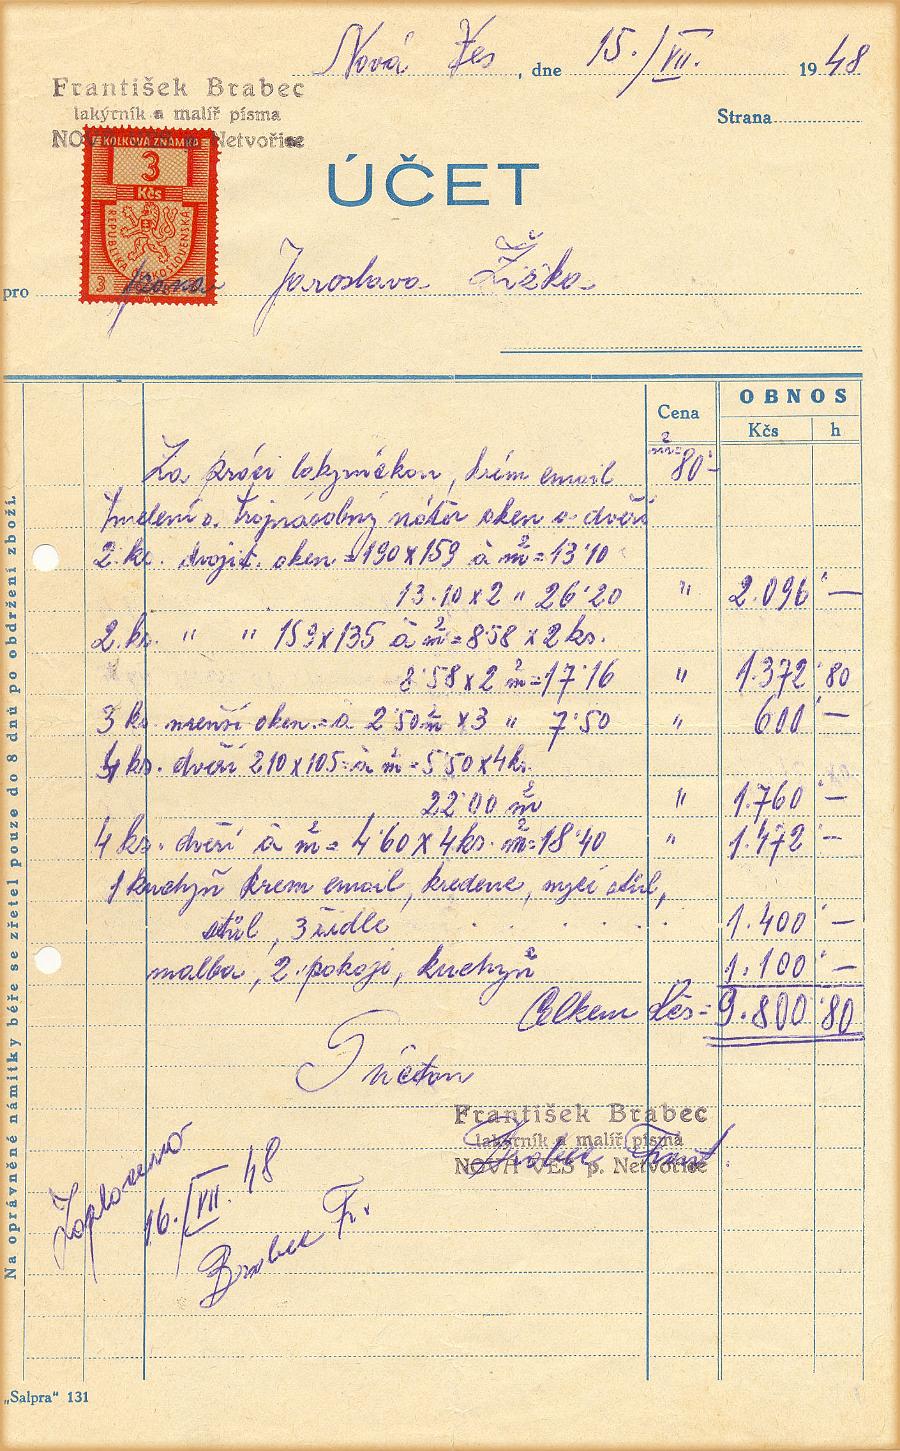 Nová Ves, dne 15./VII. 1948
František Brabec
lakýrník a malíř písma
NOVÁ VES p. Netvořice
Strana
KOLKOVÁ ZNÁMKA
3
Kčs
REPUBLIKA ČESKOSLOVENSKÁ
3
ÚČET
pro pana Jaroslava Žižka
Cena
OBNOS
Kčs h
Za práci lakýrnickou, krém email m²=80'-
tmelení a trojnásobný nátěr oken a dveří
2 ks. dvojit. oken = 190x159 à m²=13'10
13.10x2 " 26'20 " 2.096'—
2 ks. " " 159x135 à m²=8'58 x 2 ks.
8'58x2 m²=17'16 " 1.372'80
3 ks. menší oken = à 2'50 m² x3 " 7'50 " 600'—
4 ks. dveří 210x105 = à m²=5'50x4 ks.
22'00 m² " 1.760'—
4 ks. dveří à m²= 4'60 x 4 ks. m²=18'40 " 1.472'—
1 kuchyň krem email, kredenc, mycí stůl,
stůl, 3 židle . . . . . . 1.400'—
malba, 2. pokoji, kuchyň 1.100'—
Celkem Kčs = 9.800'80
S úctou
František Brabec
lakýrník a malíř písma
NOVÁ VES p. Netvořice
Brabec Frant.
Zaplaceno
16./VII. 48
Brabec Fr.
Na oprávněné námitky béře se zřetel pouze do 8 dnů po obdržení zboží.
„Salpra" 131